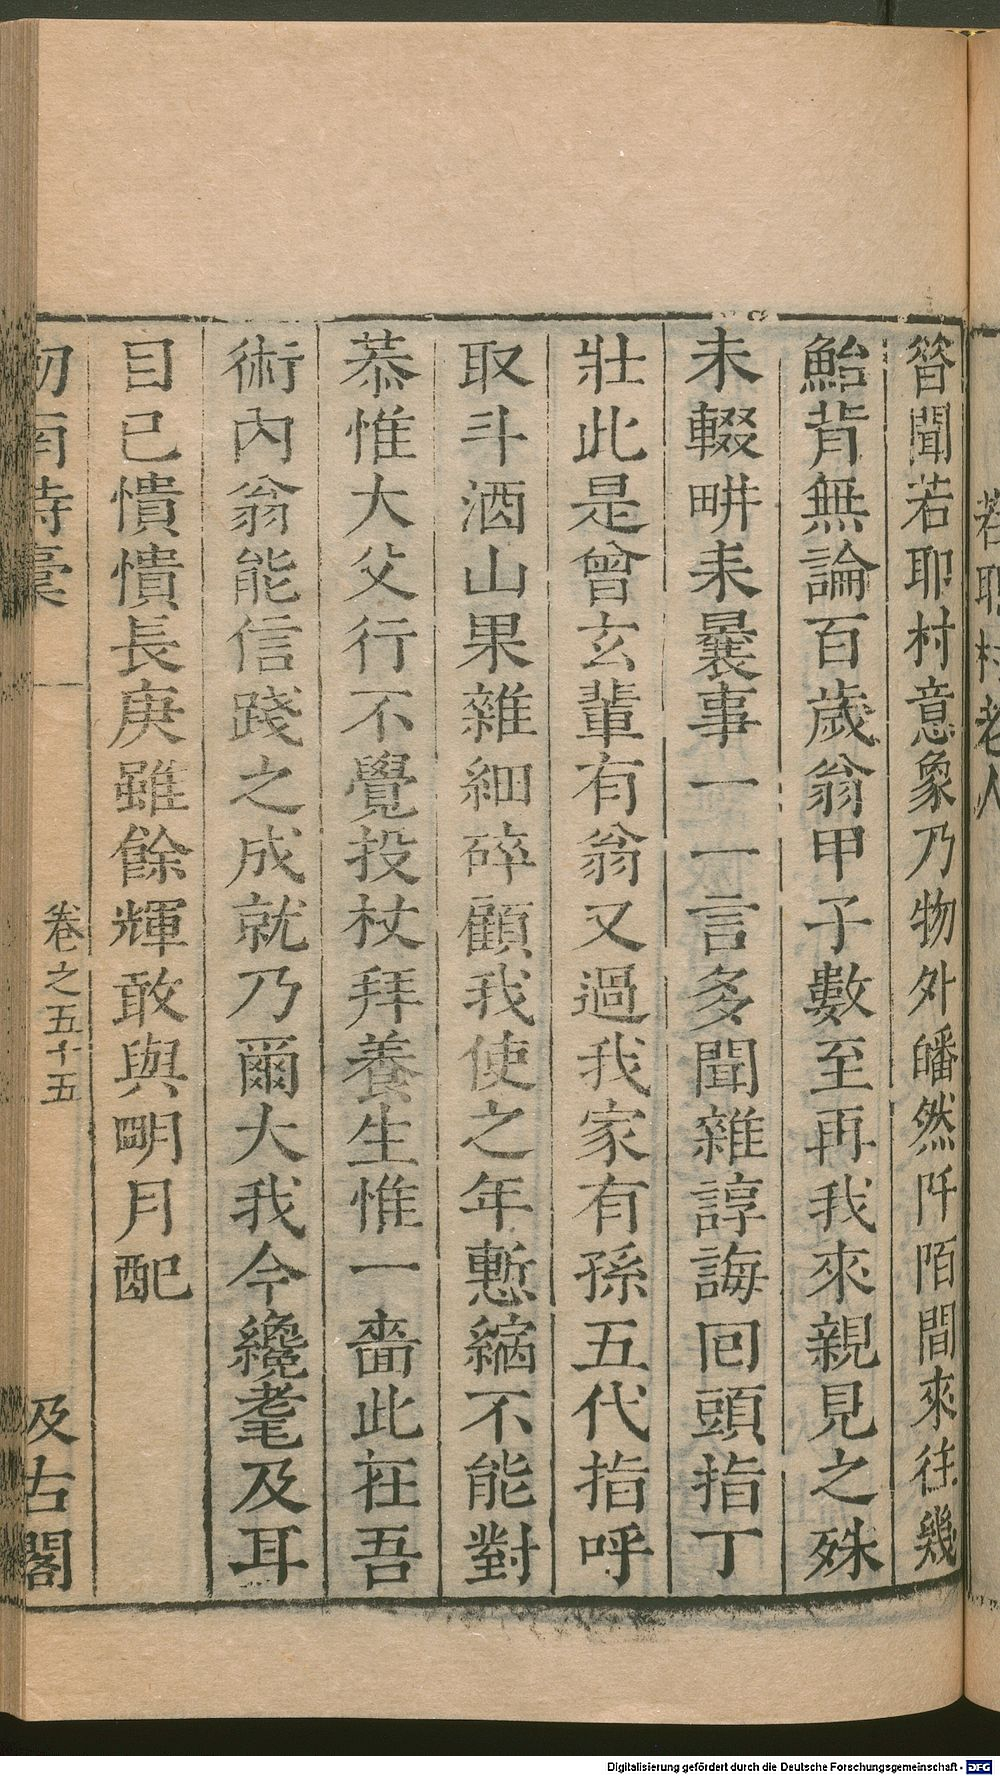 若耶村老人
昝聞若耶村意象乃物外皤然阡陌間來往幾
鮐背無論百歲翁甲子數至再我來親見之殊
未輟畊耒曩事一一言多聞雜諄誨回頭指丁
壯此是曾玄輩有翁又過我家有孫五代指呼
取斗酒山果雜細碎顧我使之年慙縮不能對
恭惟大父行不覺投杖拜養生惟一嗇此在吾
術內翁能信踐之成就乃爾大我今纔耄及耳
目已憒憒長庚雖餘輝敢與明月配
劍南詩稾
卷之五十五
汲古閣
Digitalisierung gefördert durch die Deutsche Forschungsgemeinschaft - DFG